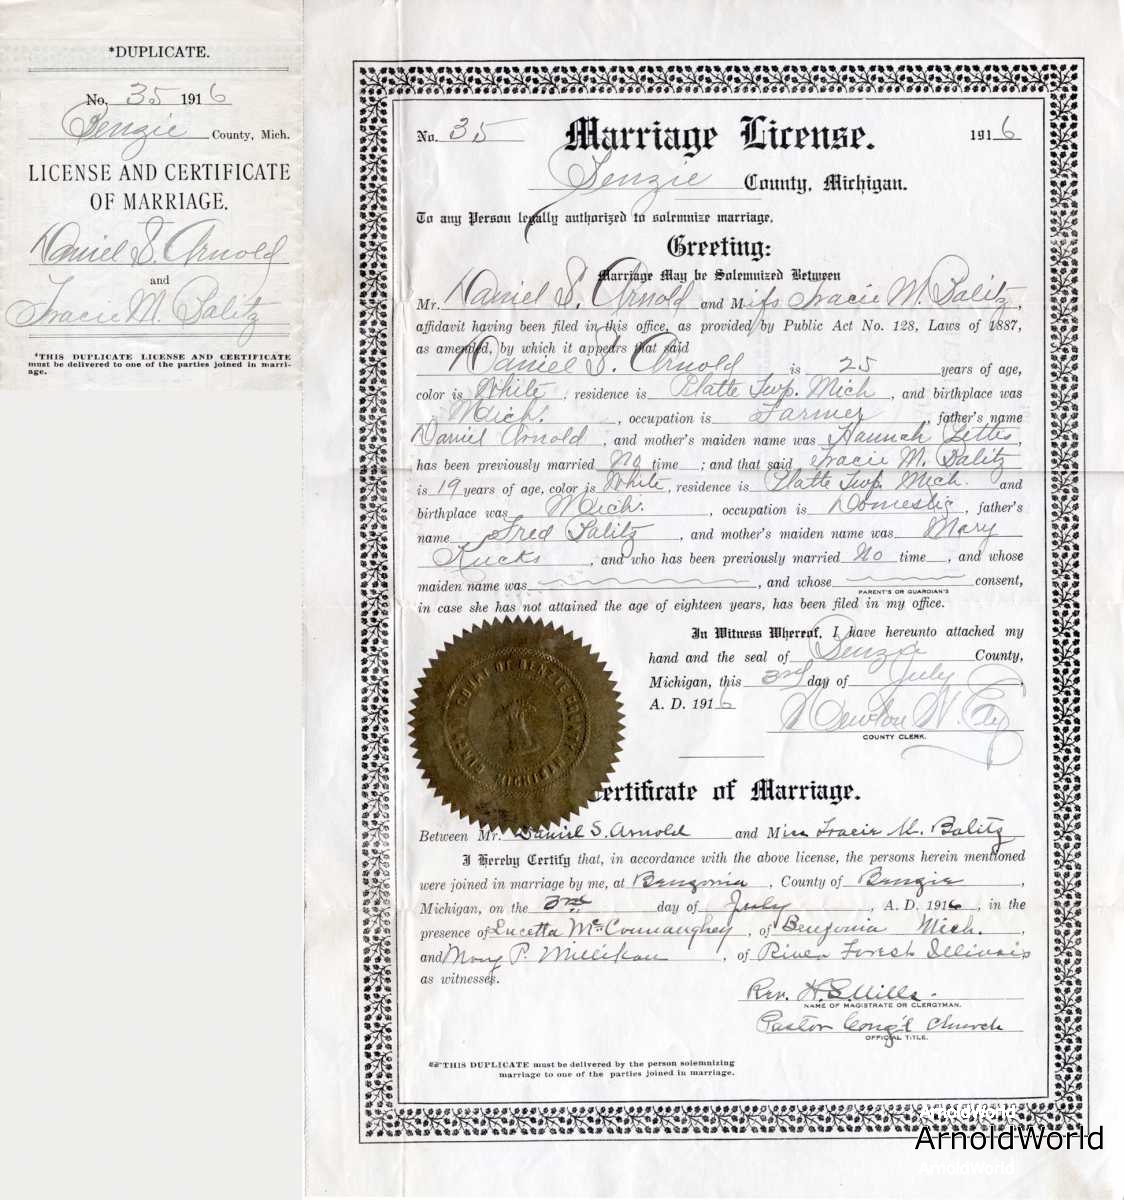 *DUPLICATE.
No. 35 1916
Benzie County, Mich.
LICENSE AND CERTIFICATE
OF MARRIAGE.
Daniel S. Arnold
and
Tracie M. Balitz
*THIS DUPLICATE LICENSE AND CERTIFICATE
must be delivered to one of the parties joined in marri-
age.
No. 35 Marriage License. 1916
Benzie County, Michigan.
To any Person legally authorized to solemnize marriage,
Greeting:
Marriage May be Solemnized Between
Mr. Daniel S. Arnold and Miss Tracie M. Balitz,
affidavit having been filed in this office, as provided by Public Act No. 128, Laws of 1887,
as amended, by which it appears that said
Daniel S. Arnold is 25 years of age,
color is White, residence is Platte Twp. Mich, and birthplace was
Mich., occupation is Farmer, father's name
Daniel Arnold, and mother's maiden name was Hannah
has been previously married No time; and that said Tracie M. Balitz
is 19 years of age, color is White, residence is Platte Twp. Mich. and
birthplace was Mich., occupation is Domestic, father's
name Fred Balitz, and mother's maiden name was Mary
, and who has been previously married No time, and whose
maiden name was, and whose consent,
PARENT'S OR GUARDIAN'S
in case she has not attained the age of eighteen years, has been filed in my office.
In Witness Whereof, I have hereunto attached my
hand and the seal of Benzie County,
Michigan, this 3rd day of July,
A. D. 1916
Newton W. Ely
COUNTY CLERK.
COURT OF BENZIE COUNTY
MICHIGAN
Certificate of Marriage.
Between Mr. Daniel S. Arnold and Miss Tracie M. Balitz
I Hereby Certify that, in accordance with the above license, the persons herein mentioned
were joined in marriage by me, at Benzonia, County of Benzie,
Michigan, on the 3rd day of July, A. D. 1916, in the
presence of Lucetta McConnaughey, of Benzonia Mich.,
and Mary P. Millikan, of River Forest Illinois
as witnesses.
Rev. H. S. Mills.
NAME OF MAGISTRATE OR CLERGYMAN.
Pastor Cong'l Church
OFFICIAL TITLE.
THIS DUPLICATE must be delivered by the person solemnizing
marriage to one of the parties joined in marriage.
ArnoldWorld
ArnoldWorld
ArnoldWorld